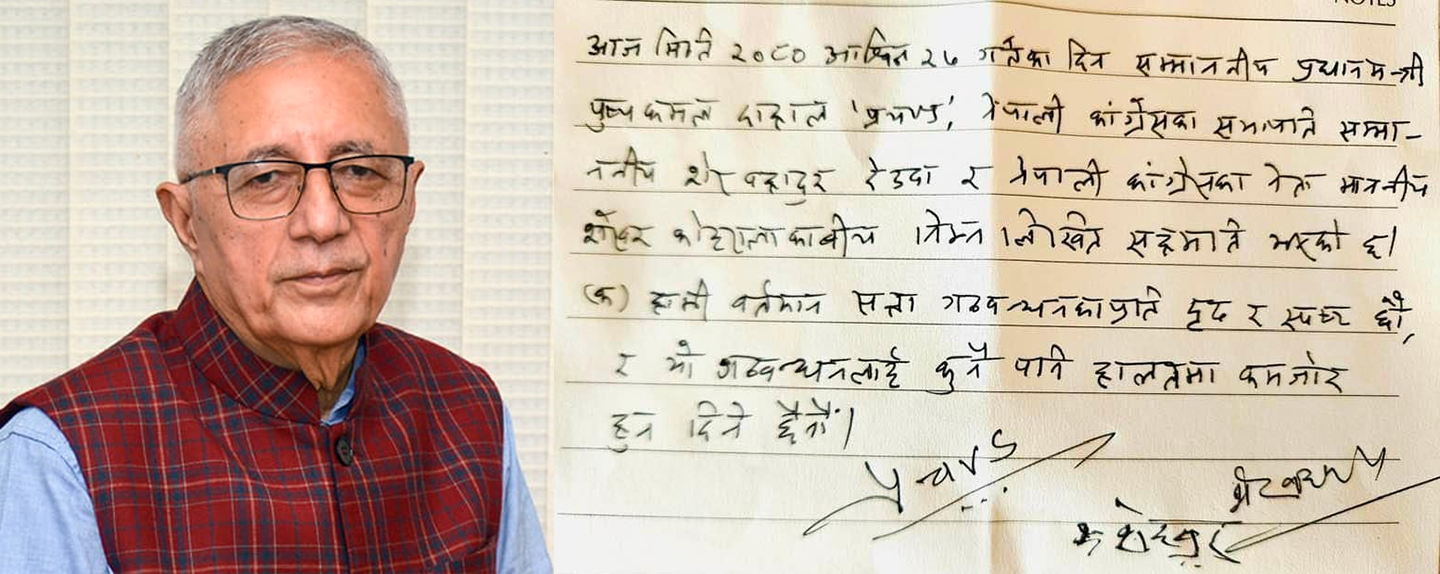 NOTES
आज मिति २०८० आश्विन २६ गतेका दिन सम्माननीय प्रधानमन्त्री
पुष्पकमल दाहाल 'प्रचण्ड', नेपाली कांग्रेसका सभापति सम्मा-
ननीय शेरबहादुर देउवा र नेपाली कांग्रेसका नेता माननीय
शेखर कोइरालाका बीच निम्न लिखित सहमति भएको छ।
(क) हामी वर्तमान सत्ता गठबन्धनका प्रति दृढ र स्पष्ट छौं,
र यो गठबन्धनलाई कुनै पनि हालतमा कमजोर
हुन दिने छैनौं।
प्रचण्ड